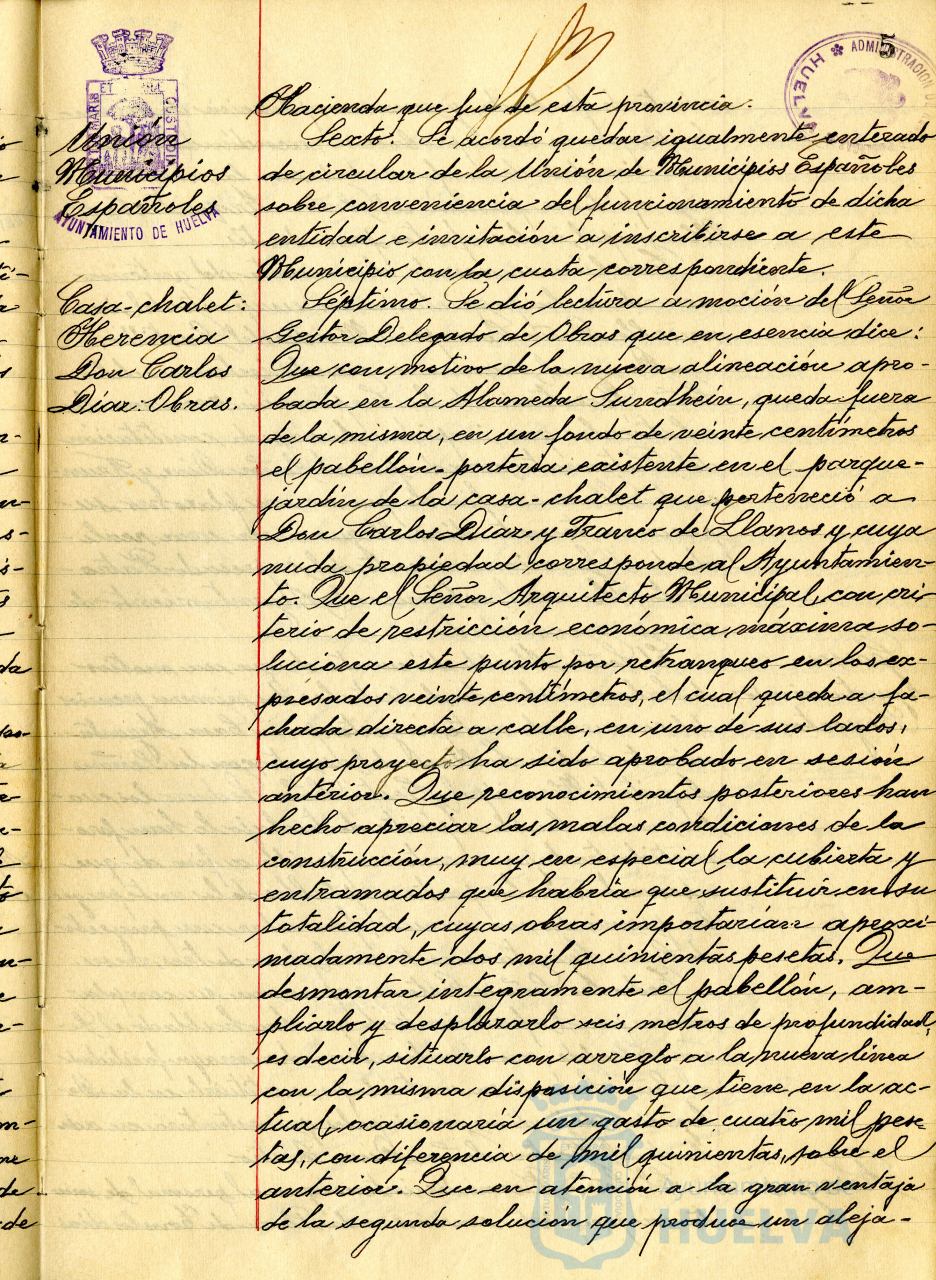 5
ADMINISTRACION D
HUELVA
PORTUS MARIS ET TERRAE CUSTODIA
AYUNTAMIENTO DE HUELVA
Unión
Municipios
Españoles
Casa-chalet:
Herencia
Don Carlos
Díaz: Obras.
Hacienda que fué de esta provincia.
Sexto. Se acordó quedar igualmente enterado
de circular de la Unión de Municipios Españoles
sobre conveniencia del funcionamiento de dicha
entidad e invitación a inscribirse a este
Municipio con la cuota correspondiente.
Séptimo. Se dió lectura a moción del Señor
Gestor Delegado de Obras que en esencia dice:
Que con motivo de la nueva alineación apro-
bada en la Alameda Sundhein, queda fuera
de la misma, en un fondo de veinte centímetros
el pabellón-portería existente en el parque-
jardín de la casa-chalet que perteneció a
Don Carlos Díaz y Franco de Llanos y cuya
nuda propiedad corresponde al Ayuntamien-
to. Que el Señor Arquitecto Municipal, con cri-
terio de restricción económica máxima so-
luciona este punto por retranqueo en los ex-
presados veinte centímetros, el cual queda a fa-
chada directa a calle, en uno de sus lados,
cuyo proyecto ha sido aprobado en sesión
anterior. Que reconocimientos posteriores han
hecho apreciar las malas condiciones de la
construcción, muy en especial la cubierta y
entramados que habría que sustituir en su
totalidad, cuyas obras importarían aproxi-
madamente dos mil quinientas pesetas. Que
desmontar integramente el pabellón, am-
pliarlo y desplazarlo seis metros de profundidad,
es decir, situarlo con arreglo a la nueva línea
con la misma disposición que tiene en la ac-
tual, ocasionaría un gasto de cuatro mil pese-
tas, con diferencia de mil quinientas, sobre el
anterior. Que en atención a la gran ventaja
de la segunda solución que produce un aleja-
HUELVA